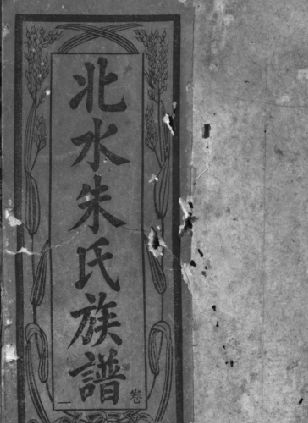 北水朱氏族譜
卷一